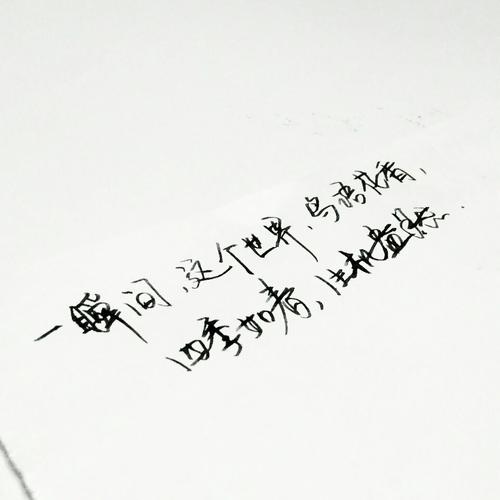 一瞬间，这个世界，鸟语花香，
四季如春，生机盎然.